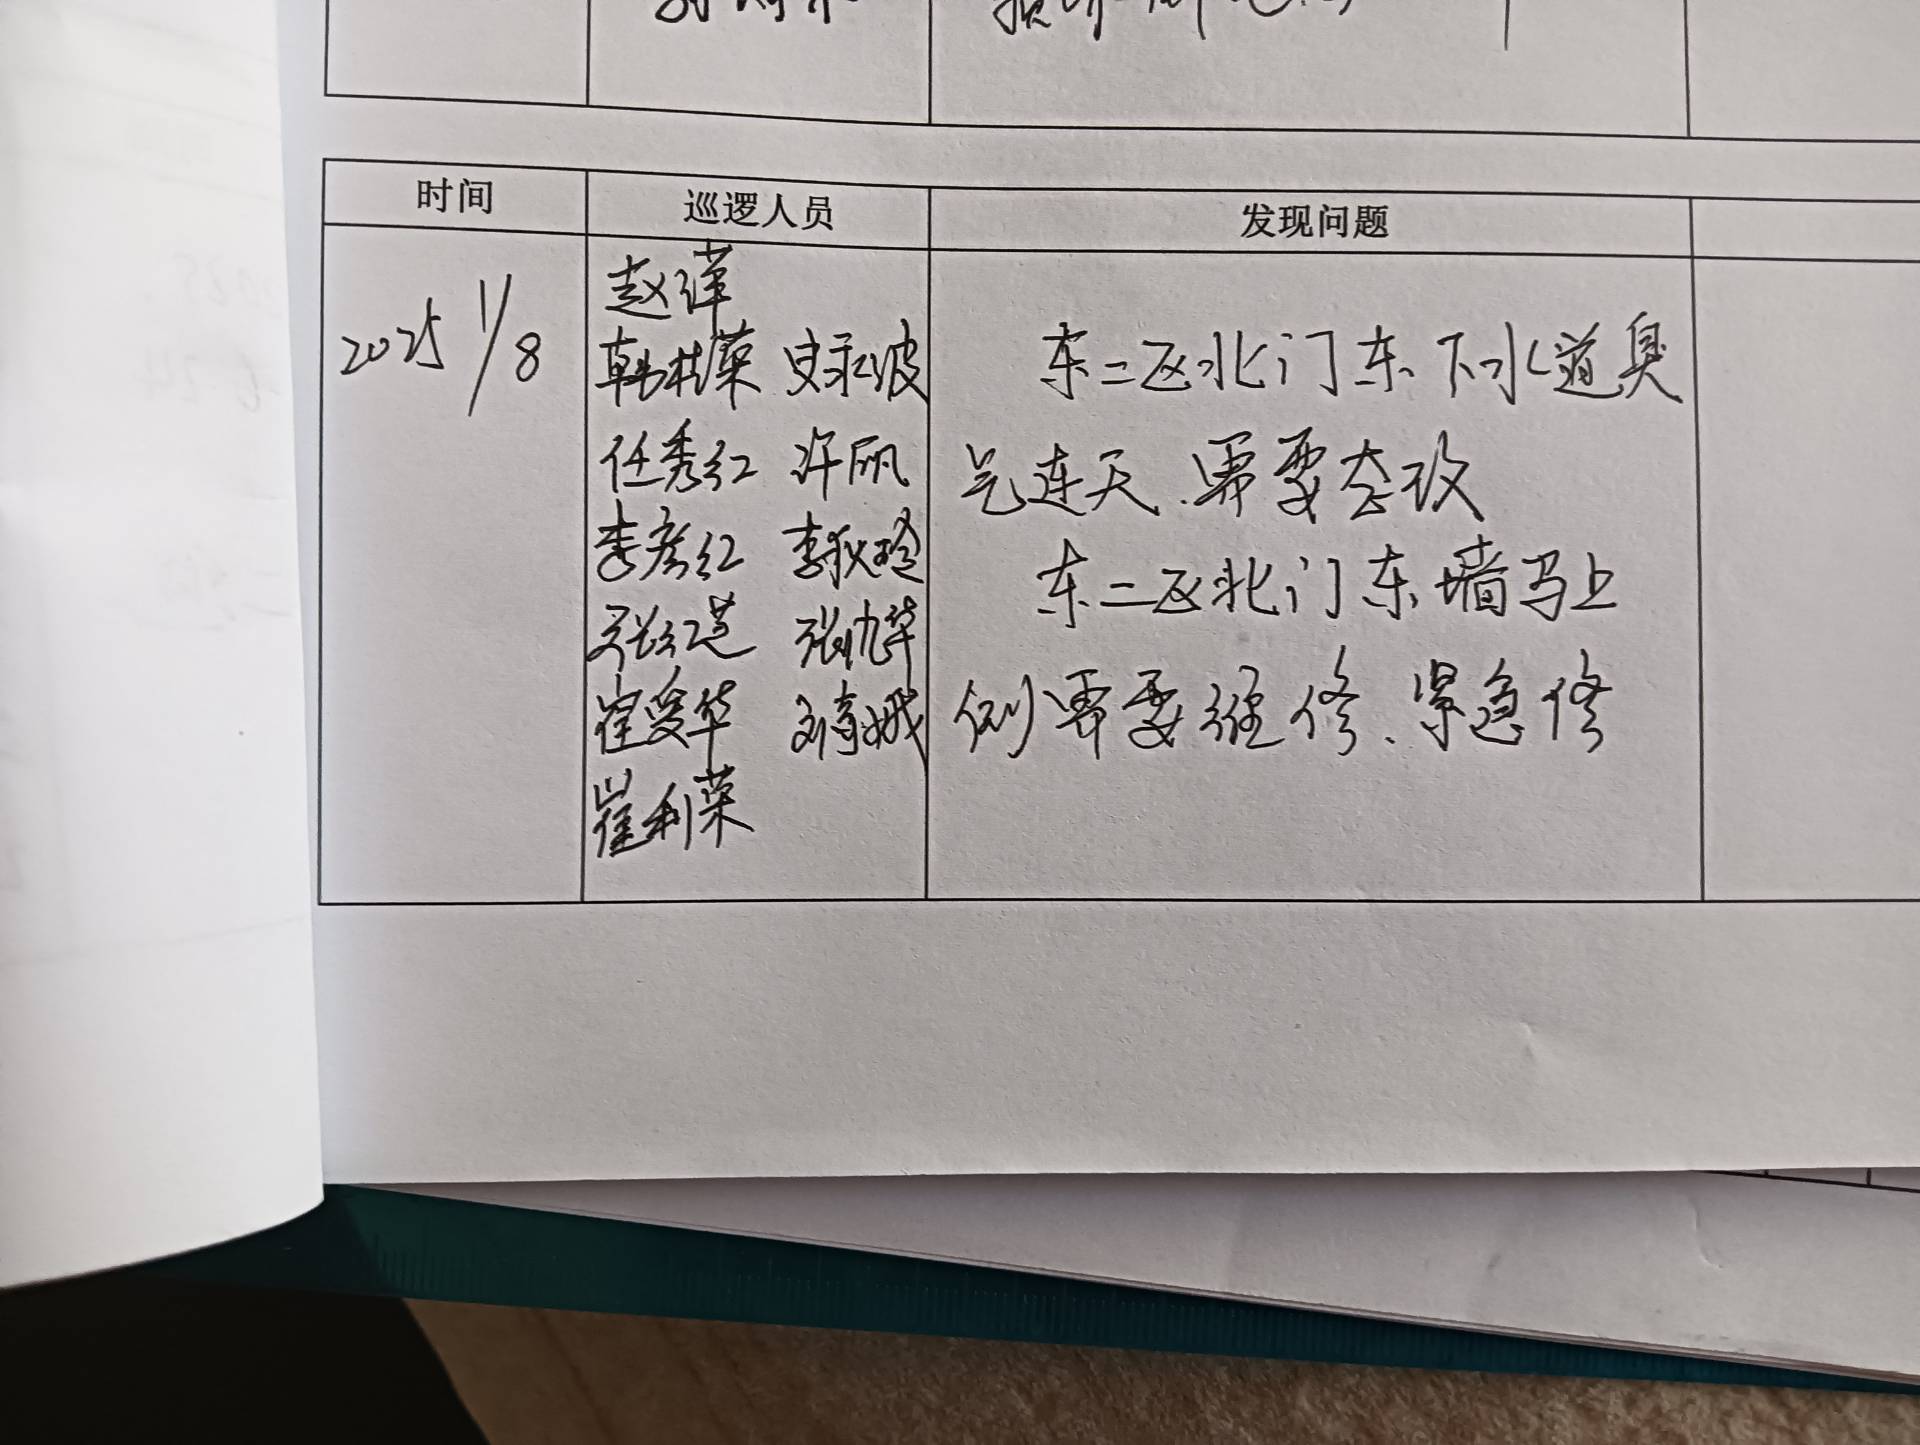 时间 巡逻人员 发现问题
2025 1/8
赵萍
韩桂荣 史永波
任秀红 许丽
李彦红 李秋玲
张红芝 张九华
崔爱华 刘嫦娥
崔利荣
东二区北门东下水道臭
气连天.需要整改
东二区北门东墙马上
倒需要维修、紧急修